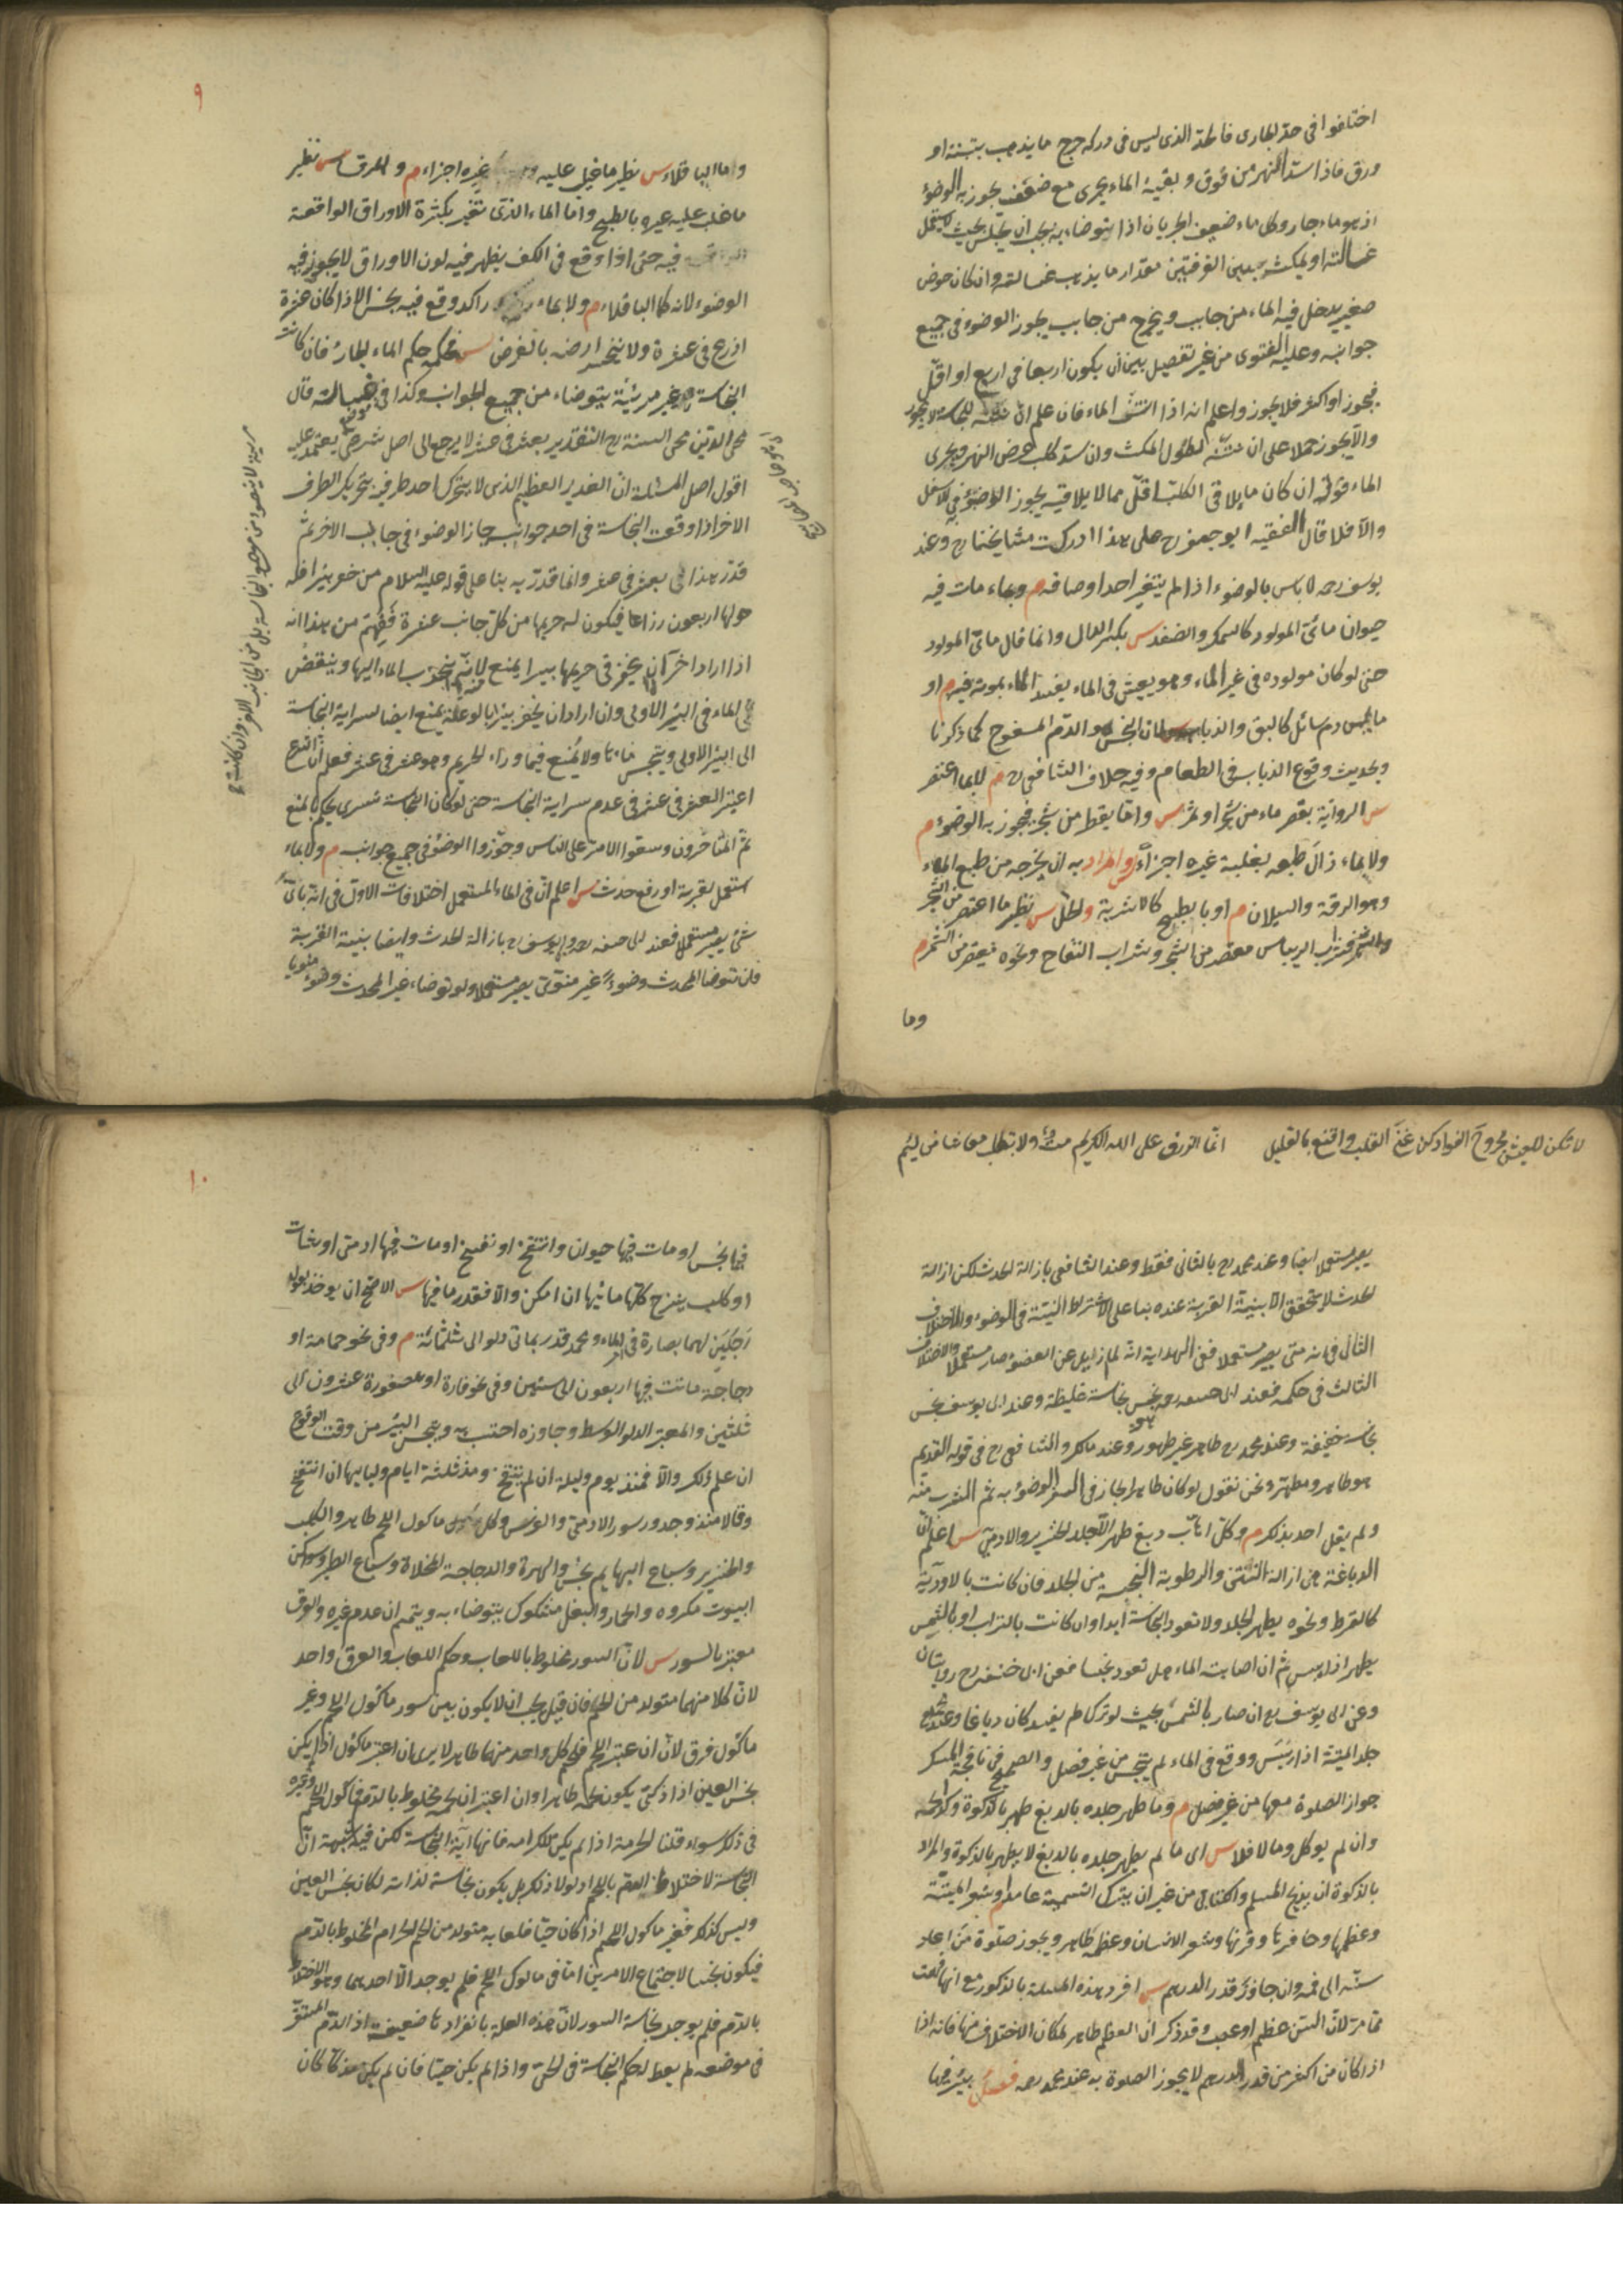 اختلفوا فى حد الجارى فالحد الذى ليس فى دركه حرج ما يذهب بتبنة او
ورق فاذا سد النهر من فوق وبقية الماء يجرى مع ضعف يجوز به الوضوء
اذ هو ماء جار وكل ماء ضعيف الجريان اذا يتوضاء به يجب ان يجلس بحيث لا يستعمل
غسالته او يمكث بين الغرفتين مقدار ما يذهب غسالته وان كان حوض
صغير يدخل فيه الماء من جانب ويخرج من جانب يجوز الوضوء فى جميع
جوانبه وعليه الفتوى من غير تفصيل بين ان يكون اربعا فى اربع او اقل
فيجوز او اكثر فلا يجوز واعلم انه اذا انتن الماء فان علم ان نتنه للنجاسة لا يجوز
والا يجوز حملا على ان نتنه لطول المكث وان سد كلب عرض النهر ويجرى
الماء فوقه ان كان ما يلاقى الكلب اقل مما لا يلاقيه يجوز الوضوء فى الاسفل
والا فلا قال الفقيه ابو جعفر رح على هذا ادركت مشايخنا رح وعند
يوسف رحه لا باس بالوضوء اذا لم يتغير احد اوصافه م وبماء مات فيه
حيوان مائى المولد كالسمك والضفدع س بكسر الدال وانما قال مائى المولود
حتى لو كان مولوده فى غير الماء وهو يعيش فى الماء يفسد الماء بموته فيه م او
ما ليس دم سائل كالبق والذباب س لان النجس هو الدم المسفوح كما ذكرنا
ولحديث وقوع الذباب فى الطعام وفيه خلاف الشافعى رح م لا بما اعتصر
س الرواية بقصر ماء من شجر او ثمر س واما يقطر من شجر فيجوز به الوضوء م
ولا بماء زال طبعه بغلبة غيره اجزاء س والمراد به ان يخرجه من طبع الماء
وهو الرقة والسيلان م او بالطبخ كالاشربة والخل س نظير ما اعتصر من الشجر
والثمر فشراب الريباس معتصر من الشجر وشراب التفاح ونحوه معتصر من الثمر م
وما
٩
واما الباقلاء س نظير ما غلب عليه غيره اجزاء م والمرق س نظير
ما غلب عليه غيره بالطبخ واما الماء الذى تغير بكثرة الاوراق الواقعة
فيه حتى اذا وقع فى الكف يظهر فيه لون الاوراق لا يجوز فيه
الوضوء لانه كماء الباقلاء م ولا بماء راكد وقع فيه نجس الا اذا كان عشرة
اذرع فى عشرة ولا ينحسر ارضه بالغرض س فحكمه حكم الماء الجارى فان كانت
النجاسة غير مرئية يتوضاء من جميع الجوانب وكذا فى موضع غسالته قال
محى الدين محى السنة رح التقدير بعشر فى عشر لا يرجع الى اصل شرعى يعتمد عليه
اقول اصل المسئلة ان الغدير العظيم الذى لا يتحرك احد طرفيه بتحريك الطرف
الاخر اذا وقعت النجاسة فى احد جوانبه جاز الوضوء فى جانب الاخر ثم
قدر هذا فى بعشر فى عشر وانما قدر به بناء على قوله عليه السلام من حفر بئرا فله
حولها اربعون ذراعا فيكون له حريمها من كل جانب عشرة فيفهم من هذا انه
اذا اراد اخر ان يحفر فى حريمها بيرا يمنع لانه ينجذب الماء اليها وينقص
الماء فى البئر الاولى وان اراد ان يحفر بئرا بالوعة يمنع ايضا لسراية النجاسة
الى البئر الاولى وينجس ماءها ولا يمنع فيما وراء الحريم وهو عشر فى عشر فعلم ان الشرع
اعتبر العشر فى عشر فى عدم سراية النجاسة حتى لو كان النجاسة تسرى يحكم بالمنع
ثم المتاخرون وسعوا الامر على الناس وجوزوا الوضوء فى جميع جوانبه م ولا بماء
استعمل لقربة او رفع حدث س اعلم ان فى الماء المستعمل اختلافات الاول فى انه باى
شئ يصير مستعملا فعند ابى حنيفه رحه وابى يوسف رح بازالة الحدث وايضا بنية القربة
فان توضا المحدث وضوءً غير منوى يصير مستعملا ولو توضاء غير المحدث وضوء منويا
لا تكن للعيش مجروح الفواد كن غنى القلب واقنع بالقليل
انما الرزق على الله الكريم مت ولا تطلب معاشا من لئيم
يصير مستعملا ايضا وعند محمد رح بالثانى فقط وعند الشافعى بازالة الحدث لكن ازالة
الحدث لا يتحقق الا بنية القربة عنده بناء على اشتراط النية فى الوضوء والاختلاف
الثانى فى انه متى يصير مستعملا ففى الهداية انه لما زايل عن العضو صار مستعملا والاختلاف
الثالث فى حكمه فعند ابى حنيفه رحه نجس نجاسة غليظة وعند ابى يوسف نجس
نجاسة خفيفة وعند محمد رح طاهر غير طهور وعند مالك والشافعى رح فى قوله القديم
هو طاهر ومطهر ونحن نقول لو كان طاهرا لجاز فى السفر الوضوء به ثم الشرب منه
ولم يقل احد بذلك م وكل اهاب دبغ طهر الا جلد الخنزير والادمى س اعلم ان
الدباغة هى ازالة النتن والرطوبة النجسة من الجلد فان كانت بالادوية
كالقرظ ونحوه يطهر الجلد ولا تعود نجاسة ابدا وان كانت بالتراب او بالشمس
يطهر اذا يبس ثم ان اصابه الماء هل تعود نجسا فعن ابى حنيفه رح روايتان
وعن ابى يوسف رح ان صار بالشمس بحيث لو ترك لم يفسد كان دباغا وعند محمد
جلد الميتة اذا يبس ووقع فى الماء لم ينجس من غير فصل والصحيح فى نافجة المسك
جواز الصلوة معها من غير فصل م وما طهر جلده بالدبغ طهر بالذكوة وكذا لحمه
وان لم يوكل وما لا فلا س اى ما لم يطهر جلده بالدبغ لا يطهر بالذكوة والمراد
بالذكوة ان يذبح المسلم والكتابى من غير ان يترك التسمية عامدا م وشعر الميتة
وعظمها وحافرها وقرنها وشعر الانسان وعظمه طاهر ويجوز صلوة من اعاد
سنه الى فمه وان جاوز قدر الدرهم س افرد هذه المسئلة بالذكور مع انها فهمت
مما مر لان السن عظم او عصب وقد ذكر ان العظم طاهر لمكان الاختلاف فيها فانه اذا
اذا كان من اكثر من قدر الدرهم لا يجوز الصلوة به عند محمد رحه فصل بئر فيها
١٠
فيها نجس او مات فيها حيوان وانتفخ او تفسخ او مات فيها ادمى او شاة
او كلب ينزح كل ماءها ان امكن والا فقدر ما فيها س الاصح ان يوخذ بقول
رجلين لهما بصارة فى الماء ومحمد قدر بماتى دلو الى ثلثمائة م وفى نحو حمامة او
دجاجة ماتت فيها اربعون الى ستين وفى نحو فارة او عصفورة عشرون الى
ثلثين والمعتبر الدلو الوسط وما جاوزه احتسب به وينجس البئر من وقت الوقوع
ان علم ذلك والا فمنذ يوم وليلة ان لم ينتفخ ومنذ ثلثة ايام ولياليها ان انتفخ
وقالا منذ وجد وسور الادمى والفرس وكل ماكول اللحم طاهر والكلب
والخنزير وسباع البهايم نجس والهرة والدجاجة المخلاة وسباع الطير وسواكن
البيوت مكروه والحمار والبغل مشكوك يتوضاء به ويتيمم ان عدم غيره والعرق
معتبر بالسور س لان السور مخلوط باللعاب وحكم اللعاب والعرق واحد
لان كلا منهما متولد من اللحم فان قيل يجب ان لا يكون بين سور ماكول اللحم وغير
ماكول فرق لان ان اعتبر اللحم فلحم كل واحد منهما طاهر الا يرى ان غير ماكول اذا لم يكن
نجس العين اذا ذكى يكون لحمه طاهرا وان اعتبر ان لحمه مخلوط بالدم فماكول اللحم وغيره
فى ذلك سواء قلنا الحرمة اذا لم يكن للكرامة فانها اية النجاسة لكن فيه شبهة ان
النجاسة لاختلاط الدم باللحم اذ لولا ذلك بل يكون نجاسة لذاته لكان نجس العين
وليس كذلك فغير ماكول اللحم اذا كان حيا فلعابه متولد من اللحم الحرام المخلوط بالدم
فيكون نجسا لاجتماع الامرين اما فى ماكول اللحم فلم يوجد الا احدهما وهو الاختلاط
بالدم فلم يوجد نجاسة السور لان هذه العلة بانفرادها ضعيفة اذ الدم المستقر
فى موضعه لم يعط له حكم النجاسة فى الحى واذا لم يكن حيا فان لم يكن مذكا كان